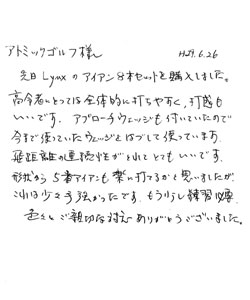 アトミックゴルフ様
H29.6.26
先日Lynxのアイアン8本セットを購入しました。
高令者にとっては全体的に打ちやすく,打感も
いいです. アプローチウェッジも付いていたので
今まで使っていたウェッジをはづして使っています.
飛距離の連続性がとれてとてもいいです.
形状から 5番アイアンも楽に打てるかと思いましたが,
これは少々手強かったです. もう少し練習必要.
色々とご親切な対応ありがとうございました.